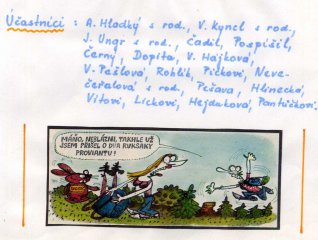 Účastníci : A. Hladký s rod., V. Kyncl s rod.,
J. Ungr s rod., Čadil, Pospíšil,
Černý, Dopita, V. Hájková,
V. Pešlová, Roblík, Pickovi, Neve-
čeřalová s rod., Pešava, Hlinecká,
Vítovi, Líckovi, Hejduková, Pantůčkovi.
MÁŇO, NEBLÁZNI, TAKHLE UŽ
JSEM PŘIŠEL O DVA RUKSAKY
PROVIANTU!